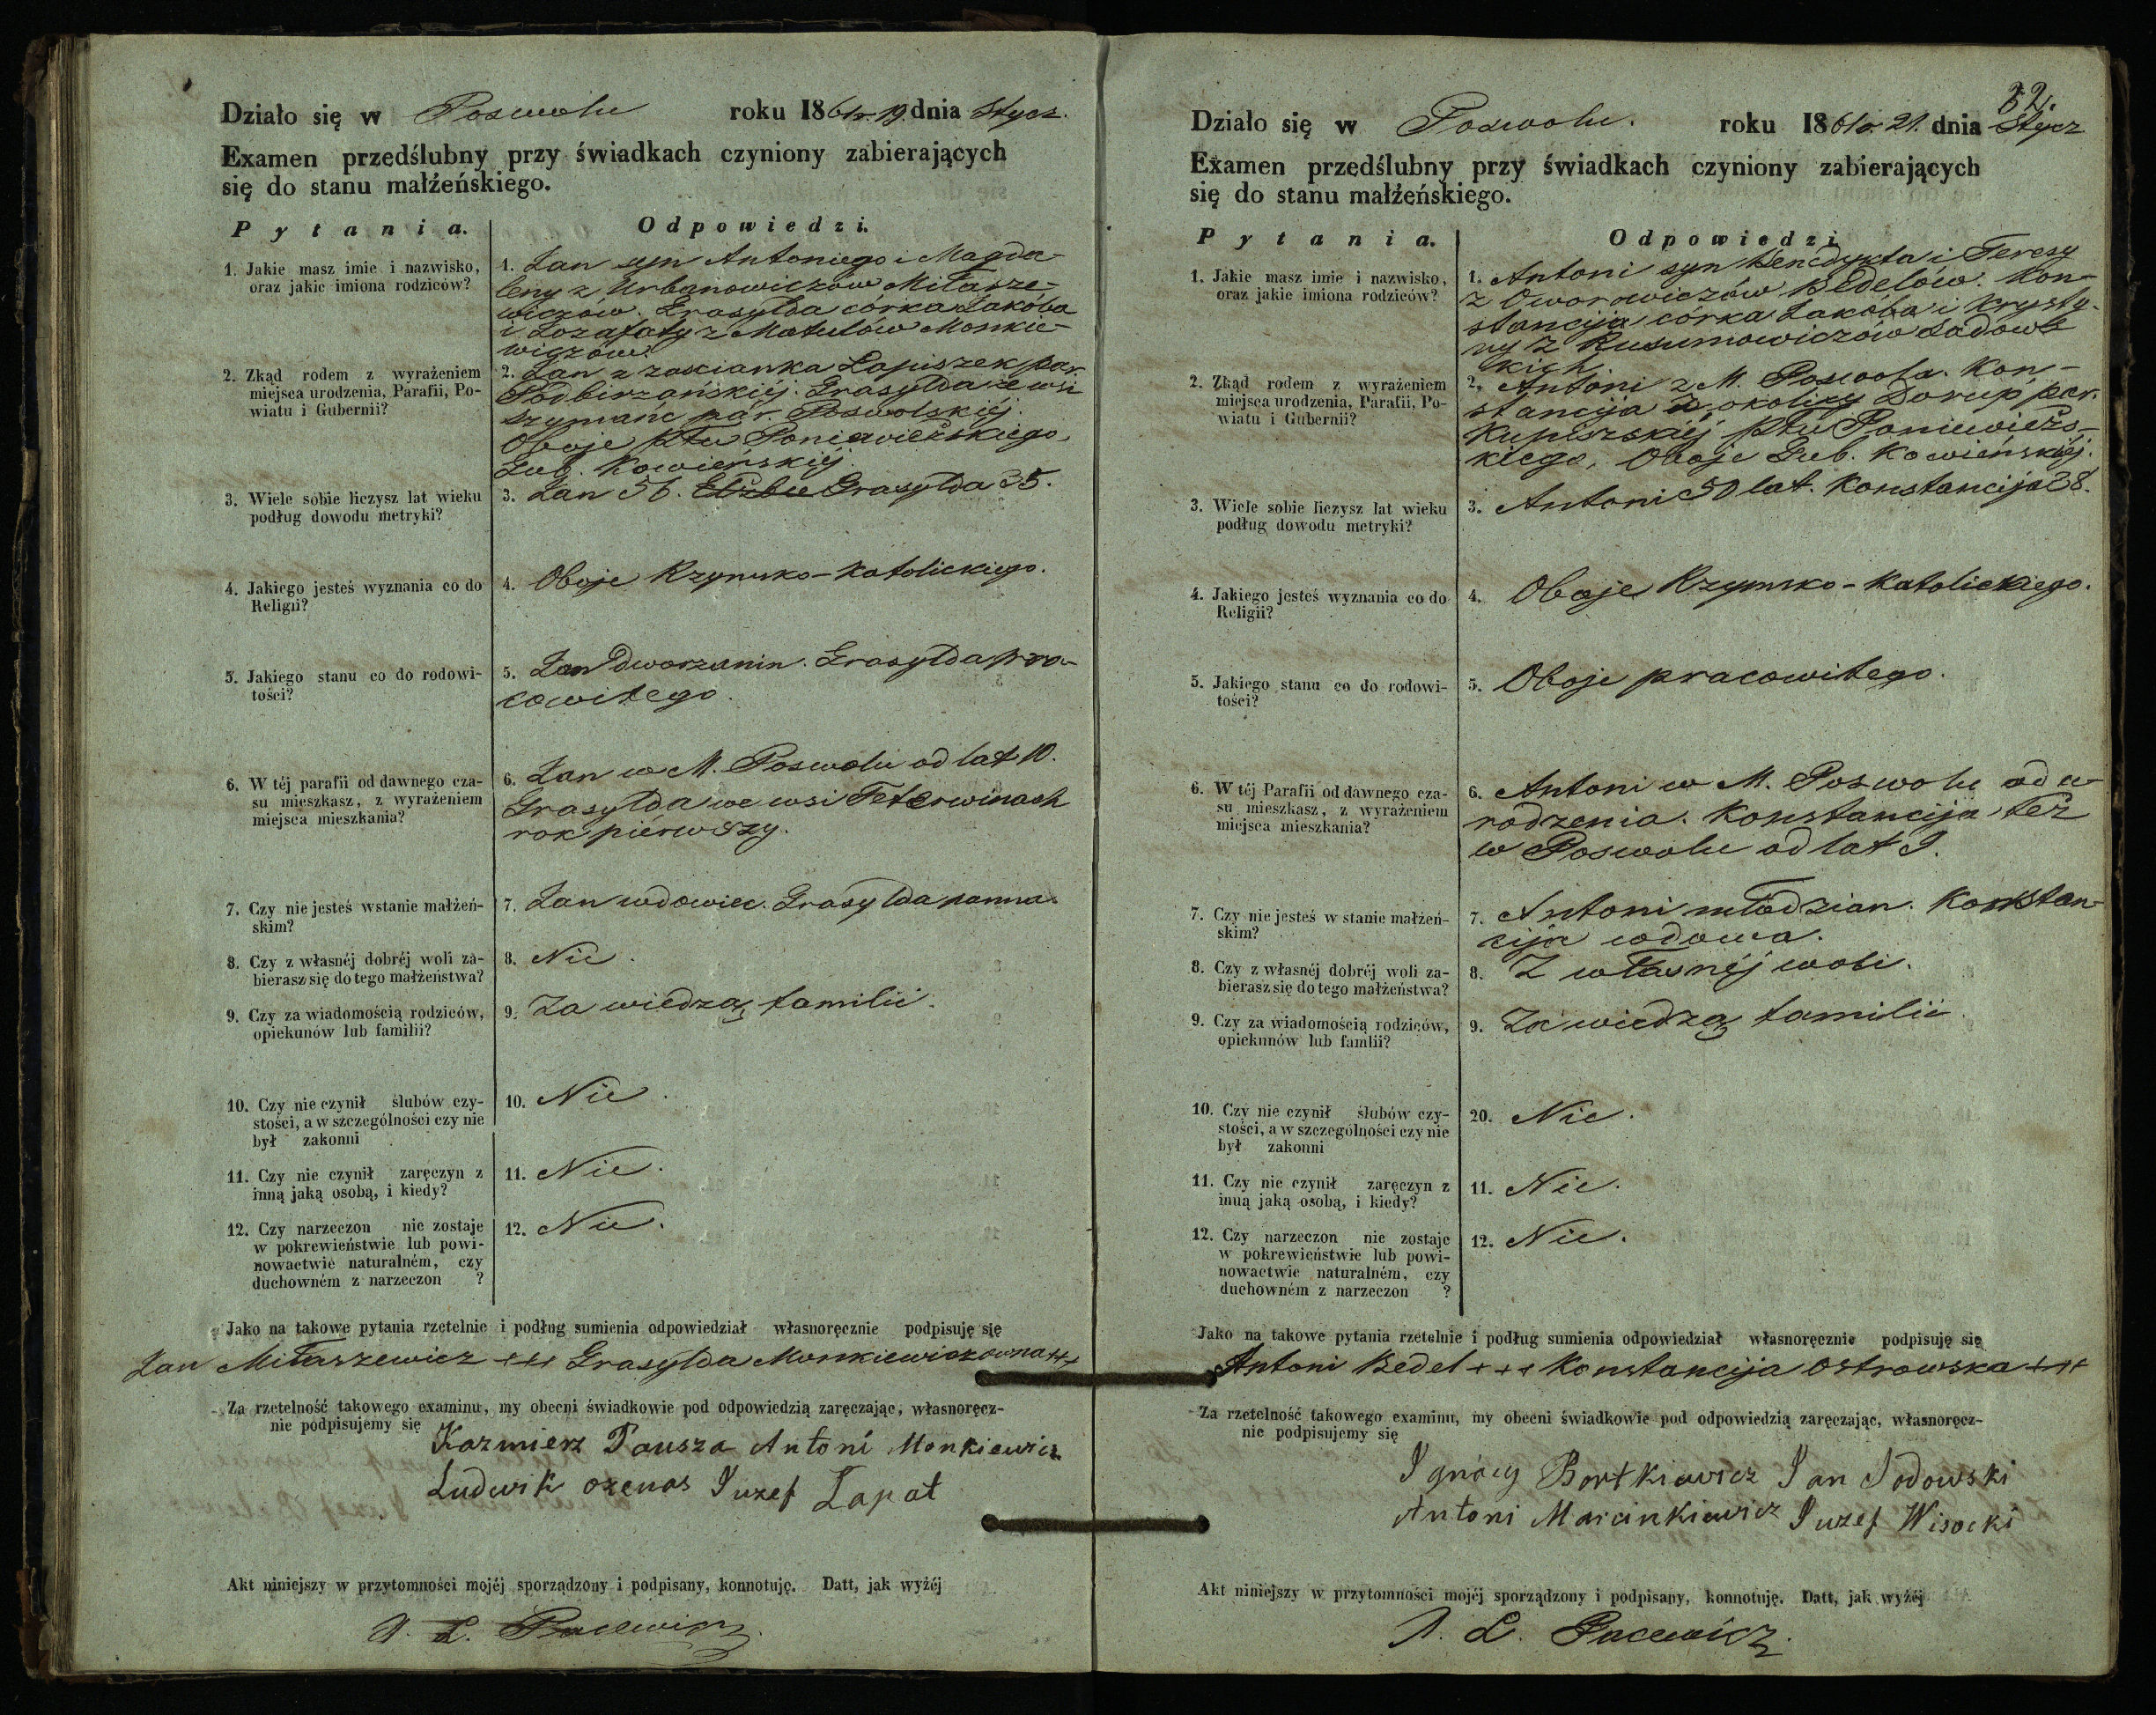 Działo się w Poswolu roku 1861 r. 19. dnia Stycz.
Examen przedślubny przy świadkach czyniony zabierających
się do stanu małżeńskiego.
Pytania. Odpowiedzi.
1. Jakie masz imie i nazwisko,
oraz jakie imiona rodziców?
1. Jan syn Antoniego i Magda-
leny z Urbanowiczów Miłasze-
wiczów. Grasylda córka Jakóba
i Jozafaty z Matulów Monkie-
wiczów.
2. Zkąd rodem z wyrażeniem
miejsca urodzenia, Parafii, Po-
wiatu i Gubernii?
2. Jan z zascianka Łapiszek par.
Podbirżańskiéj. Grasylda ze wsi
Szymanc par. Poswolskiéj.
Oboje Ptu Poniewieżskiego,
Gub. Kowieńskiéj.
3. Wiele sobie liczysz lat wieku
podług dowodu metryki?
3. Jan 56. Elżbie Grasylda 35.
4. Jakiego jesteś wyznania co do
Religii?
4. Oboje Rzymsko-Katolickiego.
5. Jakiego stanu co do rodowi-
tości?
5. Jan Dworzanin. Grasylda pra-
cowitego.
6. W téj parafii od dawnego cza-
su mieszkasz, z wyrażeniem
miejsca mieszkania?
6. Jan w M. Poswolu od lat 10.
Grasylda we wsi Teterwinach
rok piérwszy.
7. Czy nie jesteś w stanie małżeń-
skim?
7. Jan wdowiec. Grasylda panna.
8. Czy z własnéj dobréj woli za-
bierasz się do tego małżeństwa?
8. Nie.
9. Czy za wiadomością rodziców,
opiekunów lub familii?
9. Za wiedzą familii.
10. Czy nie czynił ślubów czy-
stości, a w szczególności czy nie
był zakonni
10. Nie.
11. Czy nie czynił zaręczyn z
inną jaką osobą, i kiedy?
11. Nie.
12. Czy narzeczon nie zostaje
w pokrewieństwie lub powi-
nowactwie naturalném, czy
duchowném z narzeczon ?
12. Nie.
Jako na takowe pytania rzetelnie i podług sumienia odpowiedział własnoręcznie podpisuję się
Jan Miłaszewicz +++ Grasylda Monkiewiczowna +++
Za rzetelność takowego examinu, my obecni świadkowie pod odpowiedzią zaręczając, własnoręcz-
nie podpisujemy się
Kazmierz Pausza Antoni Monkiewicz
Ludwik ozenas Juzef Łapat
Akt niniejszy w przytomności mojéj sporządzony i podpisany, konnotuję. Datt, jak wyżéj
Pacewicz
32.
Działo się w Poswolu. roku 1861 r. 21. dnia Stycz
Examen przedślubny przy świadkach czyniony zabierających
się do stanu małżeńskiego.
Pytania. Odpowiedzi
1. Jakie masz imie i nazwisko,
oraz jakie imiona rodziców?
1. Antoni syn Benedykta i Teresy
z Dworowiczów Bedelów. Kon-
stancija córka Jakóba i Krysty-
ny z Rusumowiczów Sadows-
kich.
2. Zkąd rodem z wyrażeniem
miejsca urodzenia, Parafii, Po-
wiatu i Gubernii?
2. Antoni z M. Poswola. Kon-
stancija z okolicy Dorup par.
Kupiszskiéj Ptu Poniewieżs-
kiego, Oboje Gub. Kowieńskiéj.
3. Wiele sobie liczysz lat wieku
podług dowodu metryki?
3. Antoni 50 lat. Konstancija 38.
4. Jakiego jesteś wyznania co do
Religii?
4. Oboje Rzymsko-Katolickiego.
5. Jakiego stanu co do rodowi-
tości?
5. Oboje pracowitego.
6. W téj Parafii od dawnego cza-
su mieszkasz, z wyrażeniem
miejsca mieszkania?
6. Antoni w M. Poswolu od u-
rodzenia. Konstancija też
w Poswolu od lat 9.
7. Czy nie jesteś w stanie małżeń-
skim?
7. Antoni młodzian. Konstan-
cija wdowa.
8. Czy z własnéj dobréj woli za-
bierasz się do tego małżeństwa?
8. Z własnéj woli.
9. Czy za wiadomością rodziców,
opiekunów lub familii?
9. Za wiedzą familii.
10. Czy nie czynił ślubów czy-
stości, a w szczególności czy nie
był zakonni
20. Nie.
11. Czy nie czynił zaręczyn z
inną jaką osobą, i kiedy?
11. Nie.
12. Czy narzeczon nie zostaje
w pokrewieństwie lub powi-
nowactwie naturalném, czy
duchowném z narzeczon ?
12. Nie.
Jako na takowe pytania rzetelnie i podług sumienia odpowiedział własnoręcznie podpisuję się
Antoni Bedel +++ Konstancija Ostrowska +++
Za rzetelność takowego examinu, my obecni świadkowie pod odpowiedzią zaręczając, własnoręcz-
nie podpisujemy się
Ignacy Bortkiewicz Jan Sodowski
Antoni Marcinkiewicz Juzef Wisocki
Akt niniejszy w przytomności mojéj sporządzony i podpisany, konnotuję. Datt, jak wyżéj
L. Pacewicz.